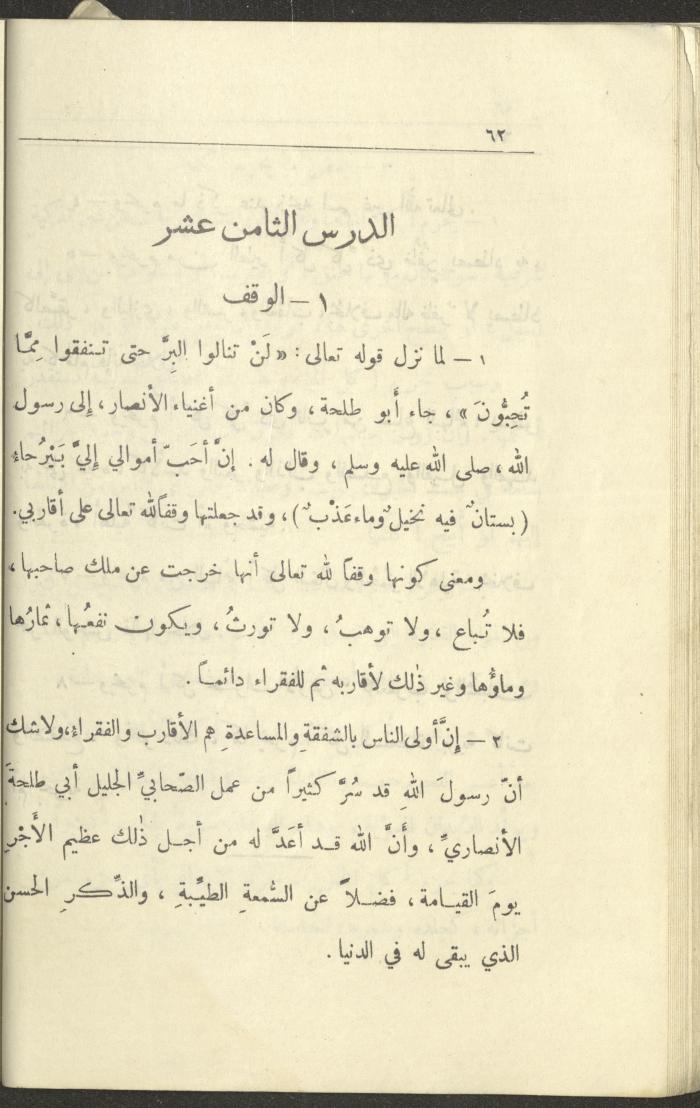 ٦٢
الدرس الثامن عشر
١ - الوقف
١ - لما نزل قوله تعالى: «لَنْ تنالوا البِرَّ حتى تـنفقوا مِمَّـا
تُحِبُّونَ»، جاء أَبو طلحة، وكان من أغنياء الأنصار، إلى رسول
الله، صلى الله عليه وسلم، وقال له. إنَّ أحَبّ أموالي إليَّ بَيْرُحاء
(بستانٌ فيه نخيلٌ وماء عَذْبٌ)، وقد جعلتها وقفاً لله تعالى على أقاربي.
ومعنى كونها وقفاً لله تعالى أنها خرجت عن ملك صاحبها،
فلا تُباع، ولا توهبُ، ولا تورثُ، ويكون نفعُها، ثمارُها
وماؤُها وغير ذٰلك لأقاربه ثم للفقراء دائمـاً.
٢ - إنَّ أولى الناس بالشفقةِ والمساعدةِ هم الأقارب والفقراءُ، ولاشك
أنّ رسولَ اللهِ قد سُرَّ كثيراً من عمل الصّحابيِّ الجليل أبي طلحةَ
الأنصاريِّ، وأَنَّ الله قـد أعَدَّ له من أجـل ذٰلك عظيم الأَجْرِ
يومَ القيـامة، فضـلاً عن السُّمعةِ الطيِّبةِ، والذِّكـرِ الحسن
الذي يبقى له في الدنيا.